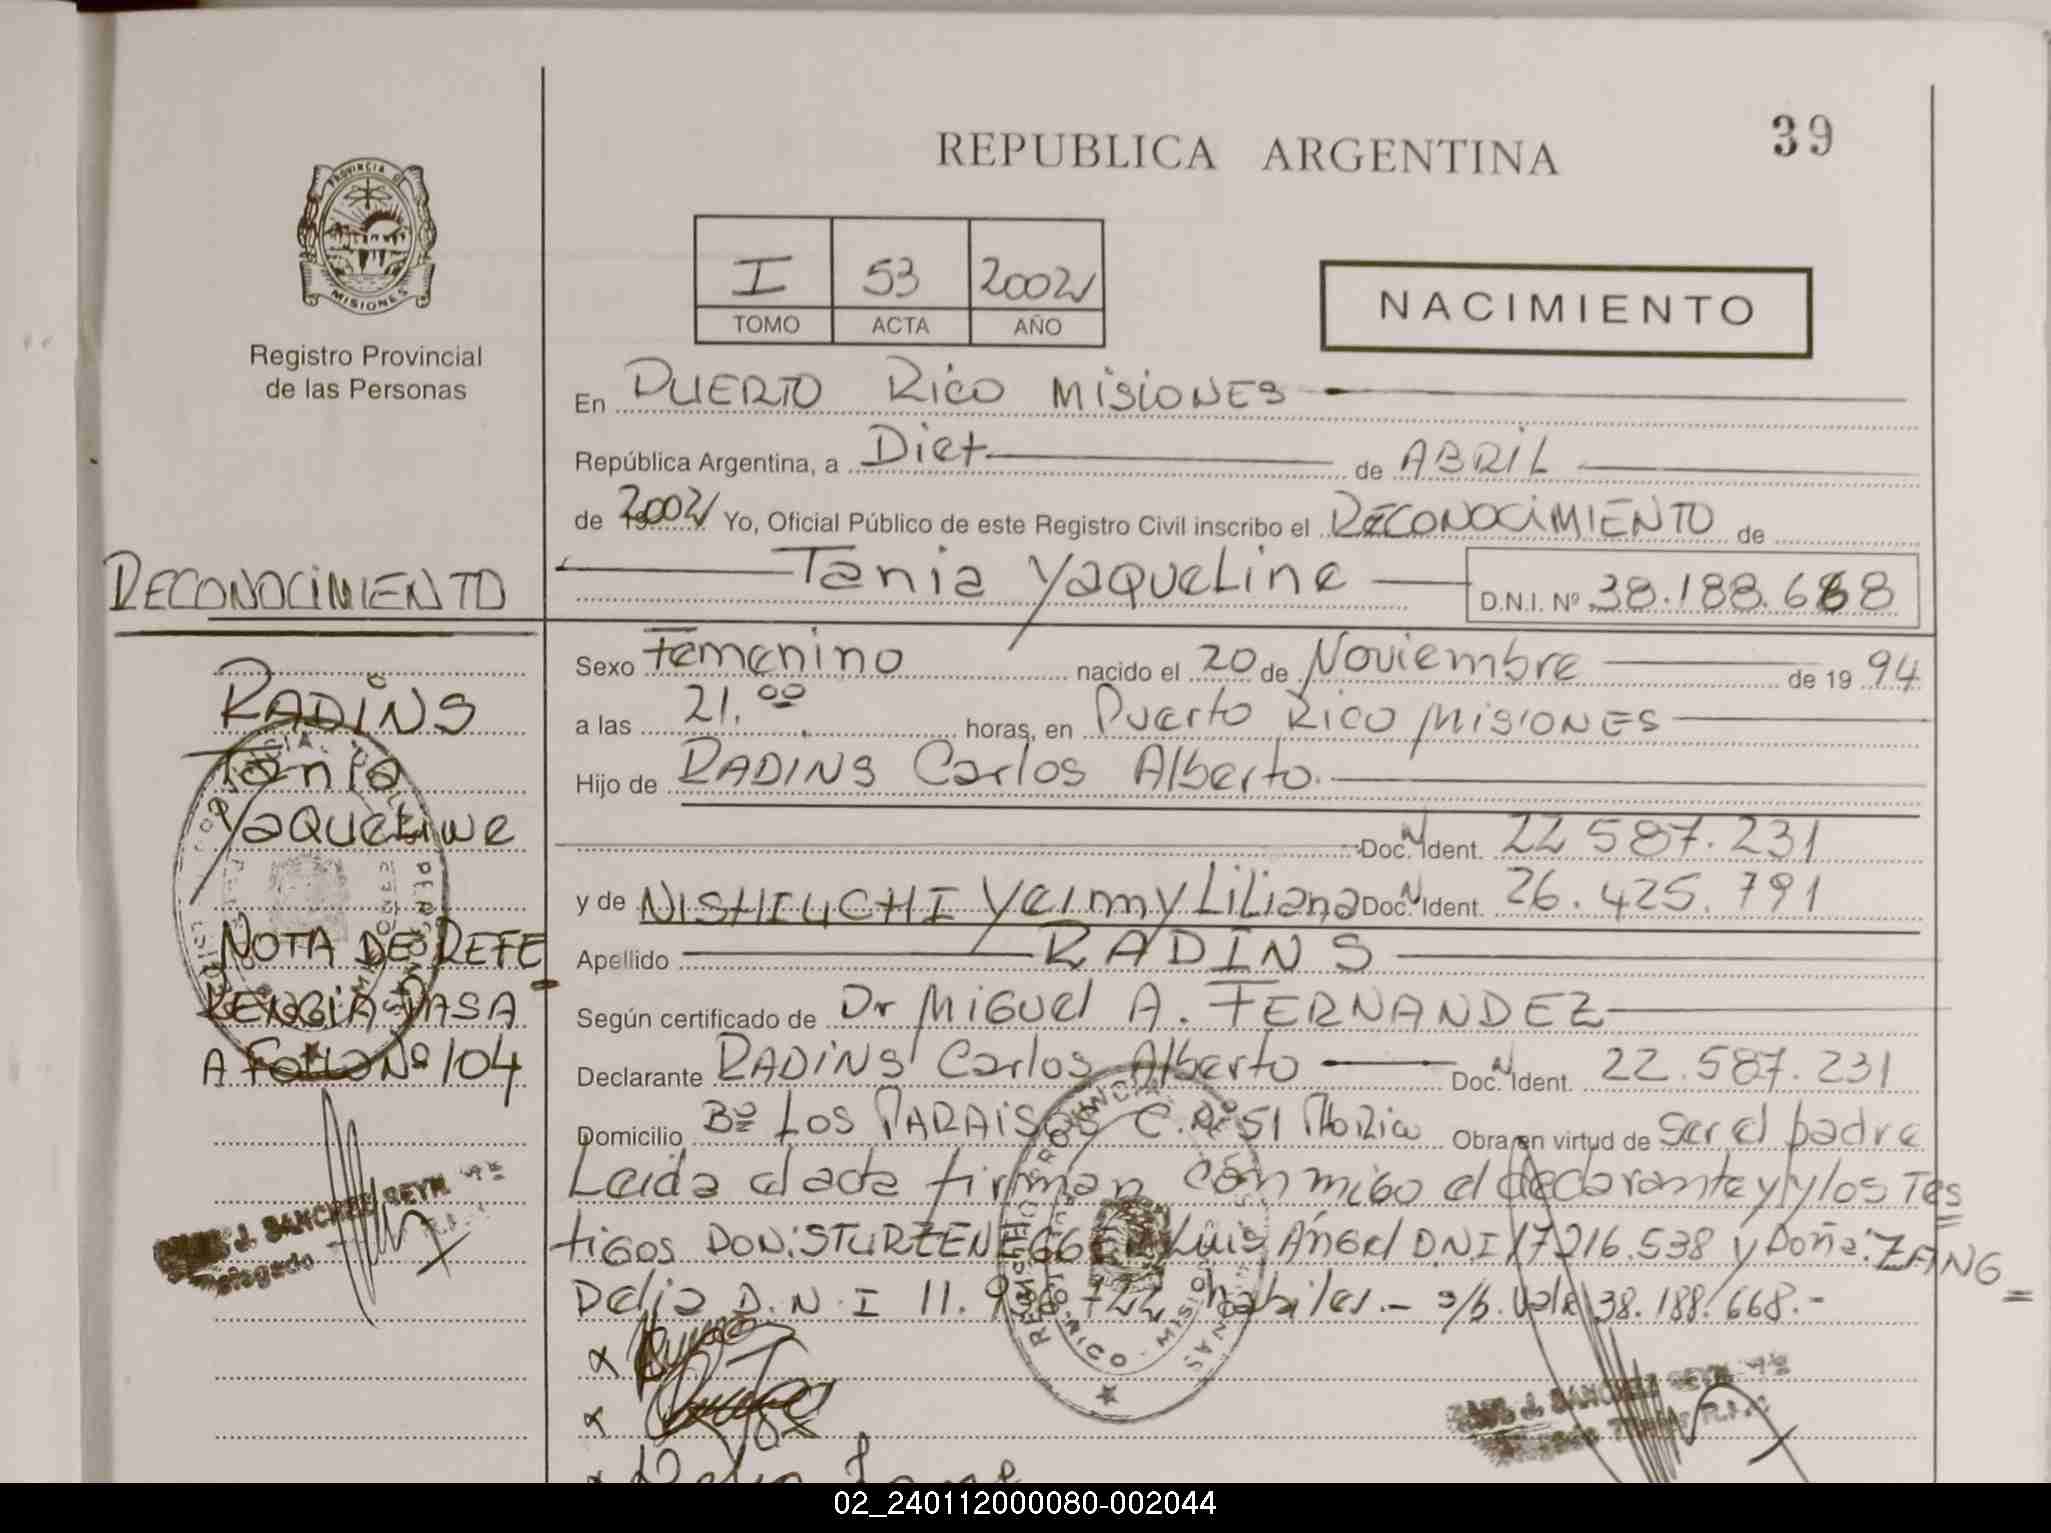 REPUBLICA ARGENTINA
39
PROVINCIA DE
MISIONES
Registro Provincial
de las Personas
I 53 2002
TOMO ACTA AÑO
NACIMIENTO
En PUERTO RICO MISIONES
República Argentina, a Diez de ABRIL
de 2002 Yo, Oficial Público de este Registro Civil inscribo el RECONOCIMIENTO de
Tania Yaqueline D.N.I. Nº 38.188.668
RECONOCIMIENTO
RADINS
Tania
Yaqueline
NOTA DE REFE
RENCIA PASA
A FOLIO Nº 104
Sexo Femenino nacido el 20 de Noviembre de 19 94
a las 21.00 horas, en Puerto Rico MISIONES
Hijo de RADINS Carlos Alberto.
Doc. N Ident. 22 587.231
y de NISHIUCHI Yeimmy Liliana Doc. N Ident. 26.425.791
Apellido RADINS
Según certificado de Dr MIGUEL A. FERNANDEZ
Declarante RADINS Carlos Alberto Doc. N Ident. 22.587.231
Domicilio Bº LOS PARAISOS C. Nº 51 Pto Rico Obra en virtud de ser el padre
Leida el acta firman conmigo el declarante y los Tes
tigos DON: Luis Ángel D.N.I 17 216.538 y Doña: ZANG
Delia D.N.I 11. 722 habiles.- s/b. Vale 38.188.668.-
J. SANCHEZ
Delegado
J. SANCHEZ
02_240112000080-002044